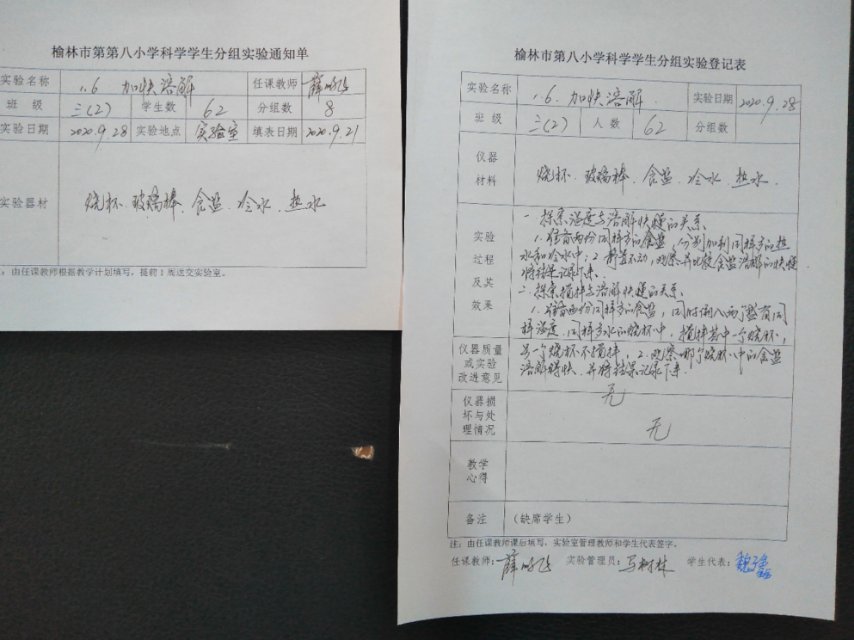 榆林市第第八小学科学学生分组实验通知单
实验名称 1.6 加快溶解 任课教师
班 级 三(2) 学生数 62 分组数 8
实验日期 2020.9.28 实验地点 实验室 填表日期 2020.9.21
实验器材 烧杯、玻璃棒、食盐、冷水、热水
:由任课教师根据教学计划填写,提前1周送交实验室。
榆林市第第八小学科学学生分组实验登记表
实验名称 1.6.加快溶解. 实验日期 2020.9.28
班 级 三(2) 人 数 62 分组数
仪器
材料
烧杯、玻璃棒、食盐、冷水、热水.
实验
过程
及其
效果
一、探索温度与溶解快慢的关系
1.准备两份同样多的食盐,分别加到同样多的热
水和冷水中;2.静置不动,观察并比较食盐溶解的快慢
将结果记录下来.
二.探索搅拌与溶解快慢的关系
1.准备两份同样多的食盐,同时倒入两个盛有同
样温度、同样多水的烧杯中,搅拌其中一个烧杯,
另一个烧杯不搅拌,2.观察哪个烧杯中的食盐
溶解得快.并将结果记录下来.
仪器质量
或实验
改进意见
无
仪器损
坏与处
理情况
无
教学
心得
备注 (缺席学生)
注:由任课教师课后填写,实验室管理教师和学生代表签字。
任课教师: 实验管理员:马树林 学生代表: